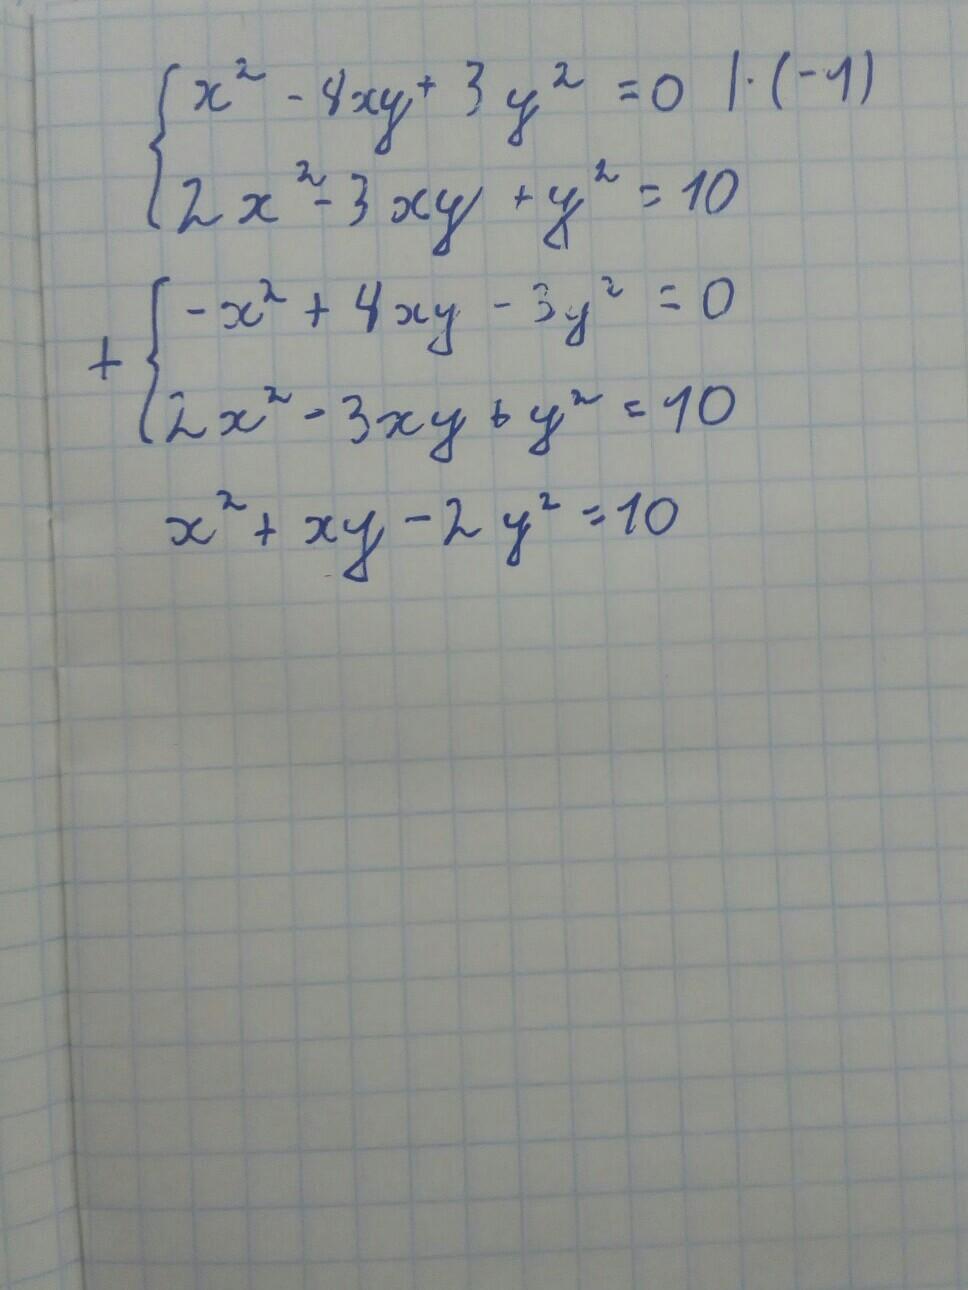 { x² - 4xy + 3y² = 0 | · (-1)
2x² - 3xy + y² = 10
+ { -x² + 4xy - 3y² = 0
2x² - 3xy + y² = 10
x² + xy - 2y² = 10